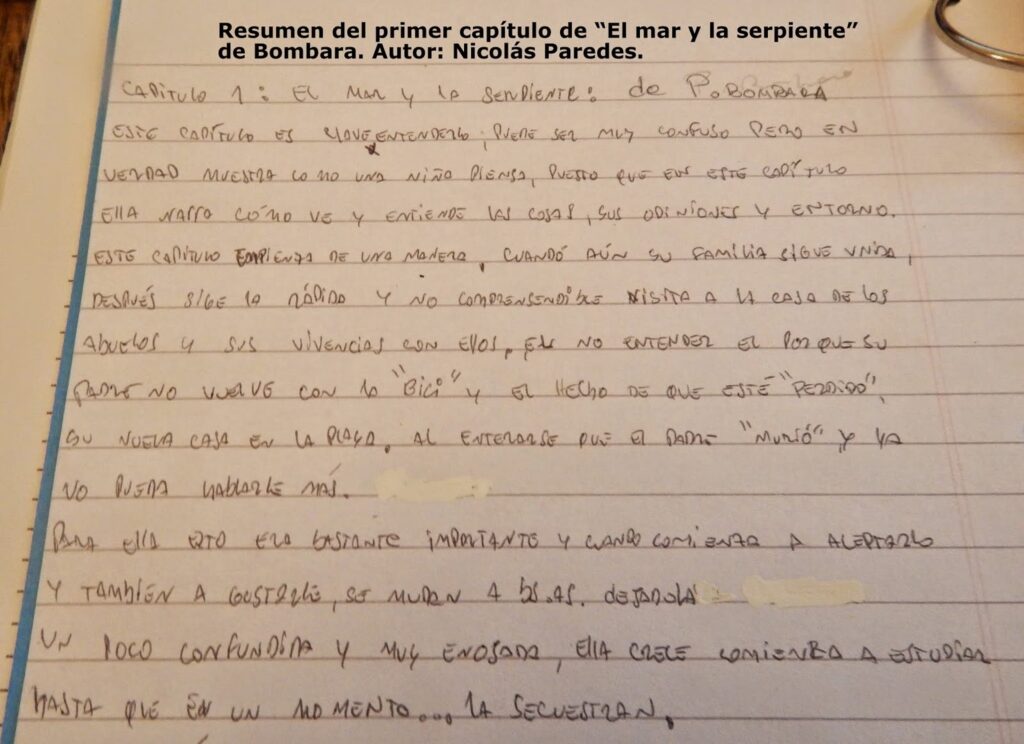 Resumen del primer capítulo de “El mar y la serpiente”
de Bombara. Autor: Nicolás Paredes.
CAPITULO 1: EL MAR Y LA SERPIENTE: de P. BOMBARA
ESTE CAPÍTULO ES CLAVE ENTENDERLO, PUEDE SER MUY CONFUSO PERO EN
VERDAD MUESTRA COMO UNA NIÑA PIENSA, PUESTO QUE EN ESTE CAPÍTULO
ELLA NARRA CÓMO VE Y ENTIENDE LAS COSAS, SUS OPINIONES Y ENTORNO.
ESTE CAPÍTULO EMPIENZA DE UNA MANERA, CUANDÓ AÚN SU FAMILIA SIGUE UNIDA,
DESPUÉS SIGE LA RÁPIDA Y NO COMPRENSENDIBLE VISITA A LA CASA DE LOS
ABUELOS Y SUS VIVENCIAS CON ELLOS, EL NO ENTENDER EL PORQUE SU
PADRE NO VUELVE CON LA "BICI" Y EL HECHO DE QUE ESTÉ "PERDIDO",
SU NUEVA CASA EN LA PLAYA, AL ENTERARSE QUE EL PADRE "MURIÓ" Y YA
NO PUEDA HABLARLE MÁS.
PARA ELLA ESTO ERA BASTANTE IMPORTANTE Y CUANDO COMIENZA A ACEPTARLO
Y TAMBIÉN A GUSTARLE, SE MUDAN A BS.AS. DEJANDOLA
UN POCO CONFUNDIDA Y MUY ENOJADA, ELLA CRECE COMIENZA A ESTUDIAR
HASTA QUE EN UN MOMENTO... LA SECUESTRAN.